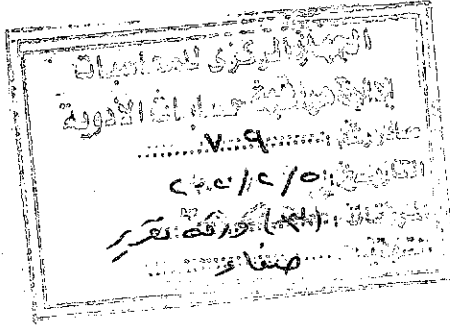 الجهاز المركزى للمحاسبات
إدارة مراقبة حسابات الأدوية
صادر رقم: ٧٠٩
التاريخ: ٥ / ٢ / ٢٠٢٠
المرفقات: ( ) ورقة تقرير
التوقيع: صفاء